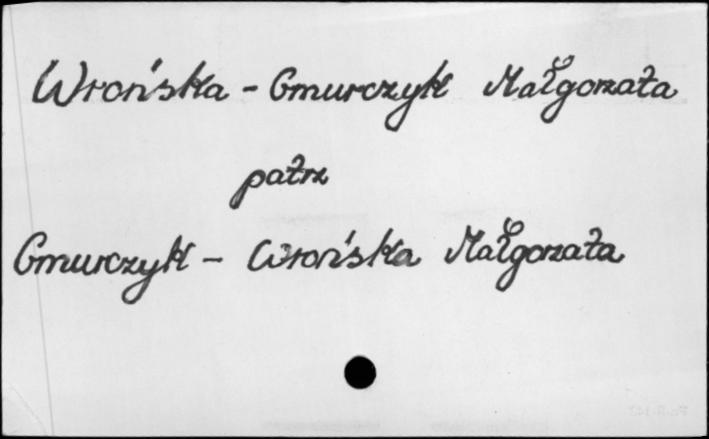 Wrońska - Gmurczyk Małgorzata
patrz
Gmurczyk - Wrońska Małgorzata